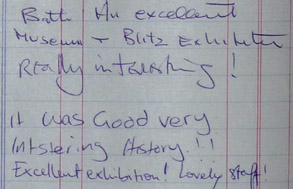 Both the excellent
Museum + Blitz Exhibition
Really interesting!
it was Good very
Intstering History!!
Excellent exhibition! Lovely staff!